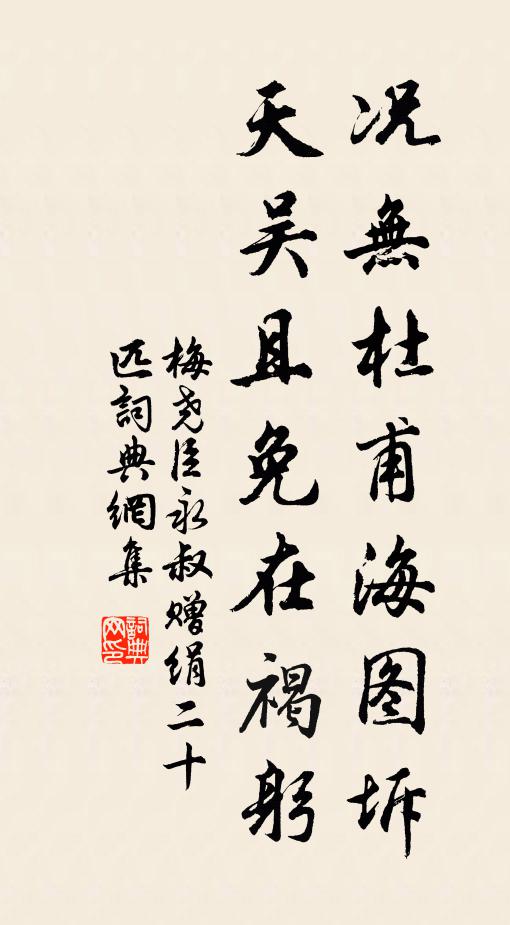 况無杜甫海图坼
天吴且免在褐躬
梅尧臣永叔赠绢二十
匹詞典網集
詞典网印